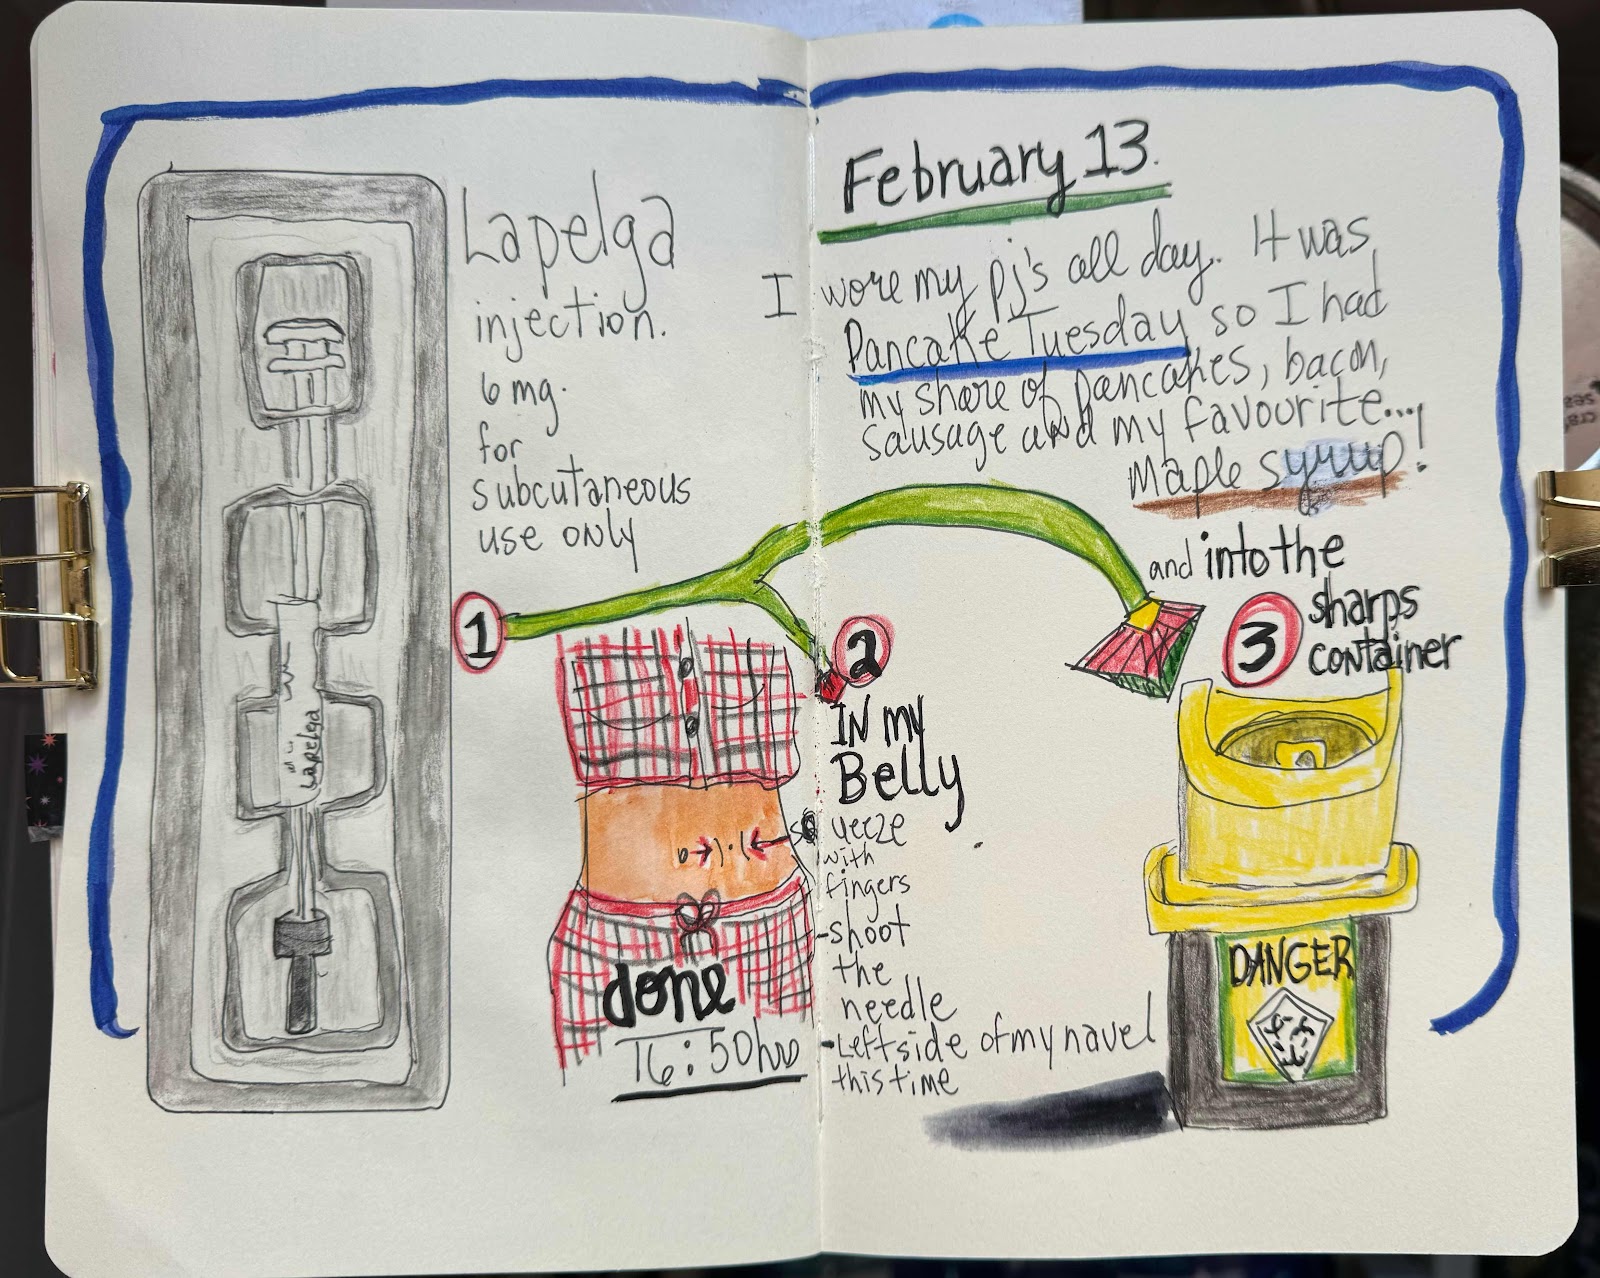 Lapelga
injection.
6 mg.
for
subcutaneous
use only
Lapelga
1
February 13.
I wore my pj's all day. It was
Pancake Tuesday so I had
my share of pancakes, bacon,
sausage and my favourite...
Maple syrup!
and into the
3 sharps
container
2
IN my
Belly
squeeze
with
fingers
-shoot
the
needle
-Left side of my navel
this time
done
16:50hrs
DANGER